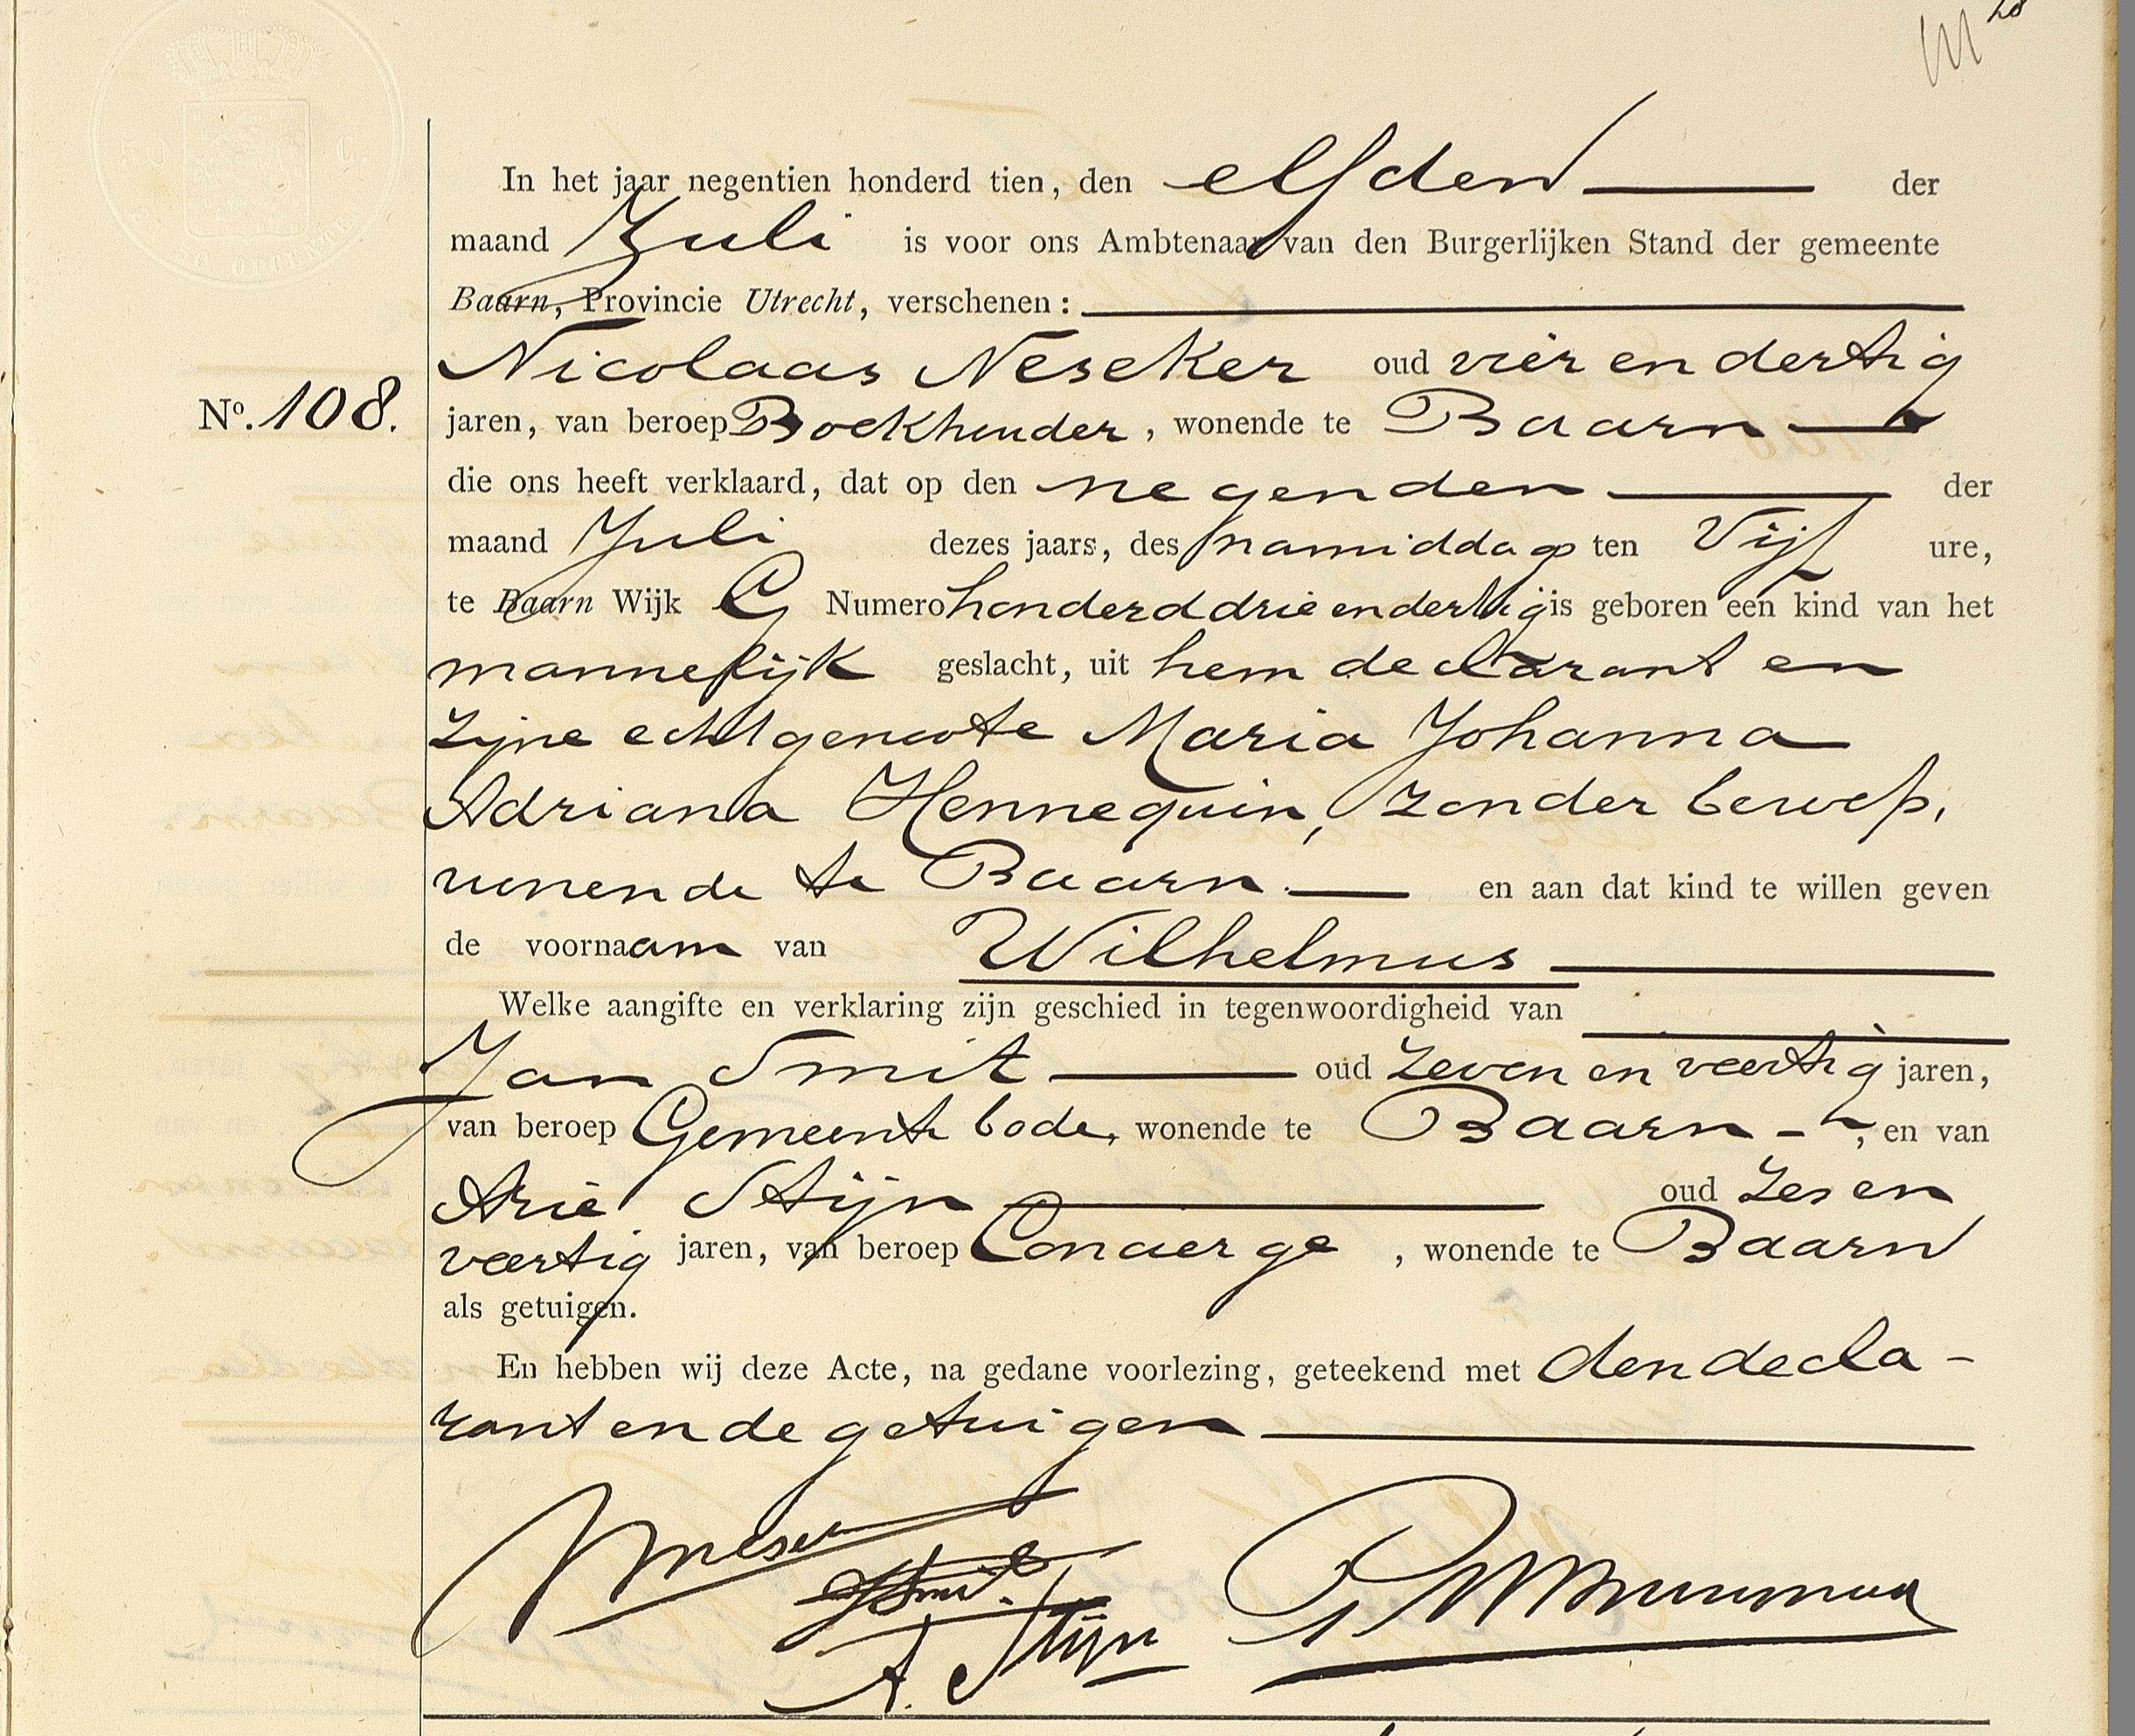 In het jaar negentien honderd tien, den elfden der
maand Juli is voor ons Ambtenaar van den Burgerlijken Stand der gemeente
Baarn, Provincie Utrecht, verschenen:
Nicolaas Neseker oud vier en dertig
No. 108.
jaren, van beroep Boekhouder, wonende te Baarn
die ons heeft verklaard, dat op den negenden der
maand Juli dezes jaars, des namiddags ten Vijf ure,
te Baarn Wijk G Numero honderd drie en dertig is geboren een kind van het
mannelijk geslacht, uit hem declarant en
zijne echtgenoote Maria Johanna
Adriana Hennequin, zonder beroep,
wonende te Baarn. en aan dat kind te willen geven
de voornaam van Wilhelmus
Welke aangifte en verklaring zijn geschied in tegenwoordigheid van
Jan Smit oud zeven en veertig jaren,
van beroep Gemeente bode, wonende te Baarn, en van
Arie Stijn oud zes en
veertig jaren, van beroep Concierge, wonende te Baarn
als getuigen.
En hebben wij deze Acte, na gedane voorlezing, geteekend met den decla-
rant en de getuigen
JSmit.
A. Stijn